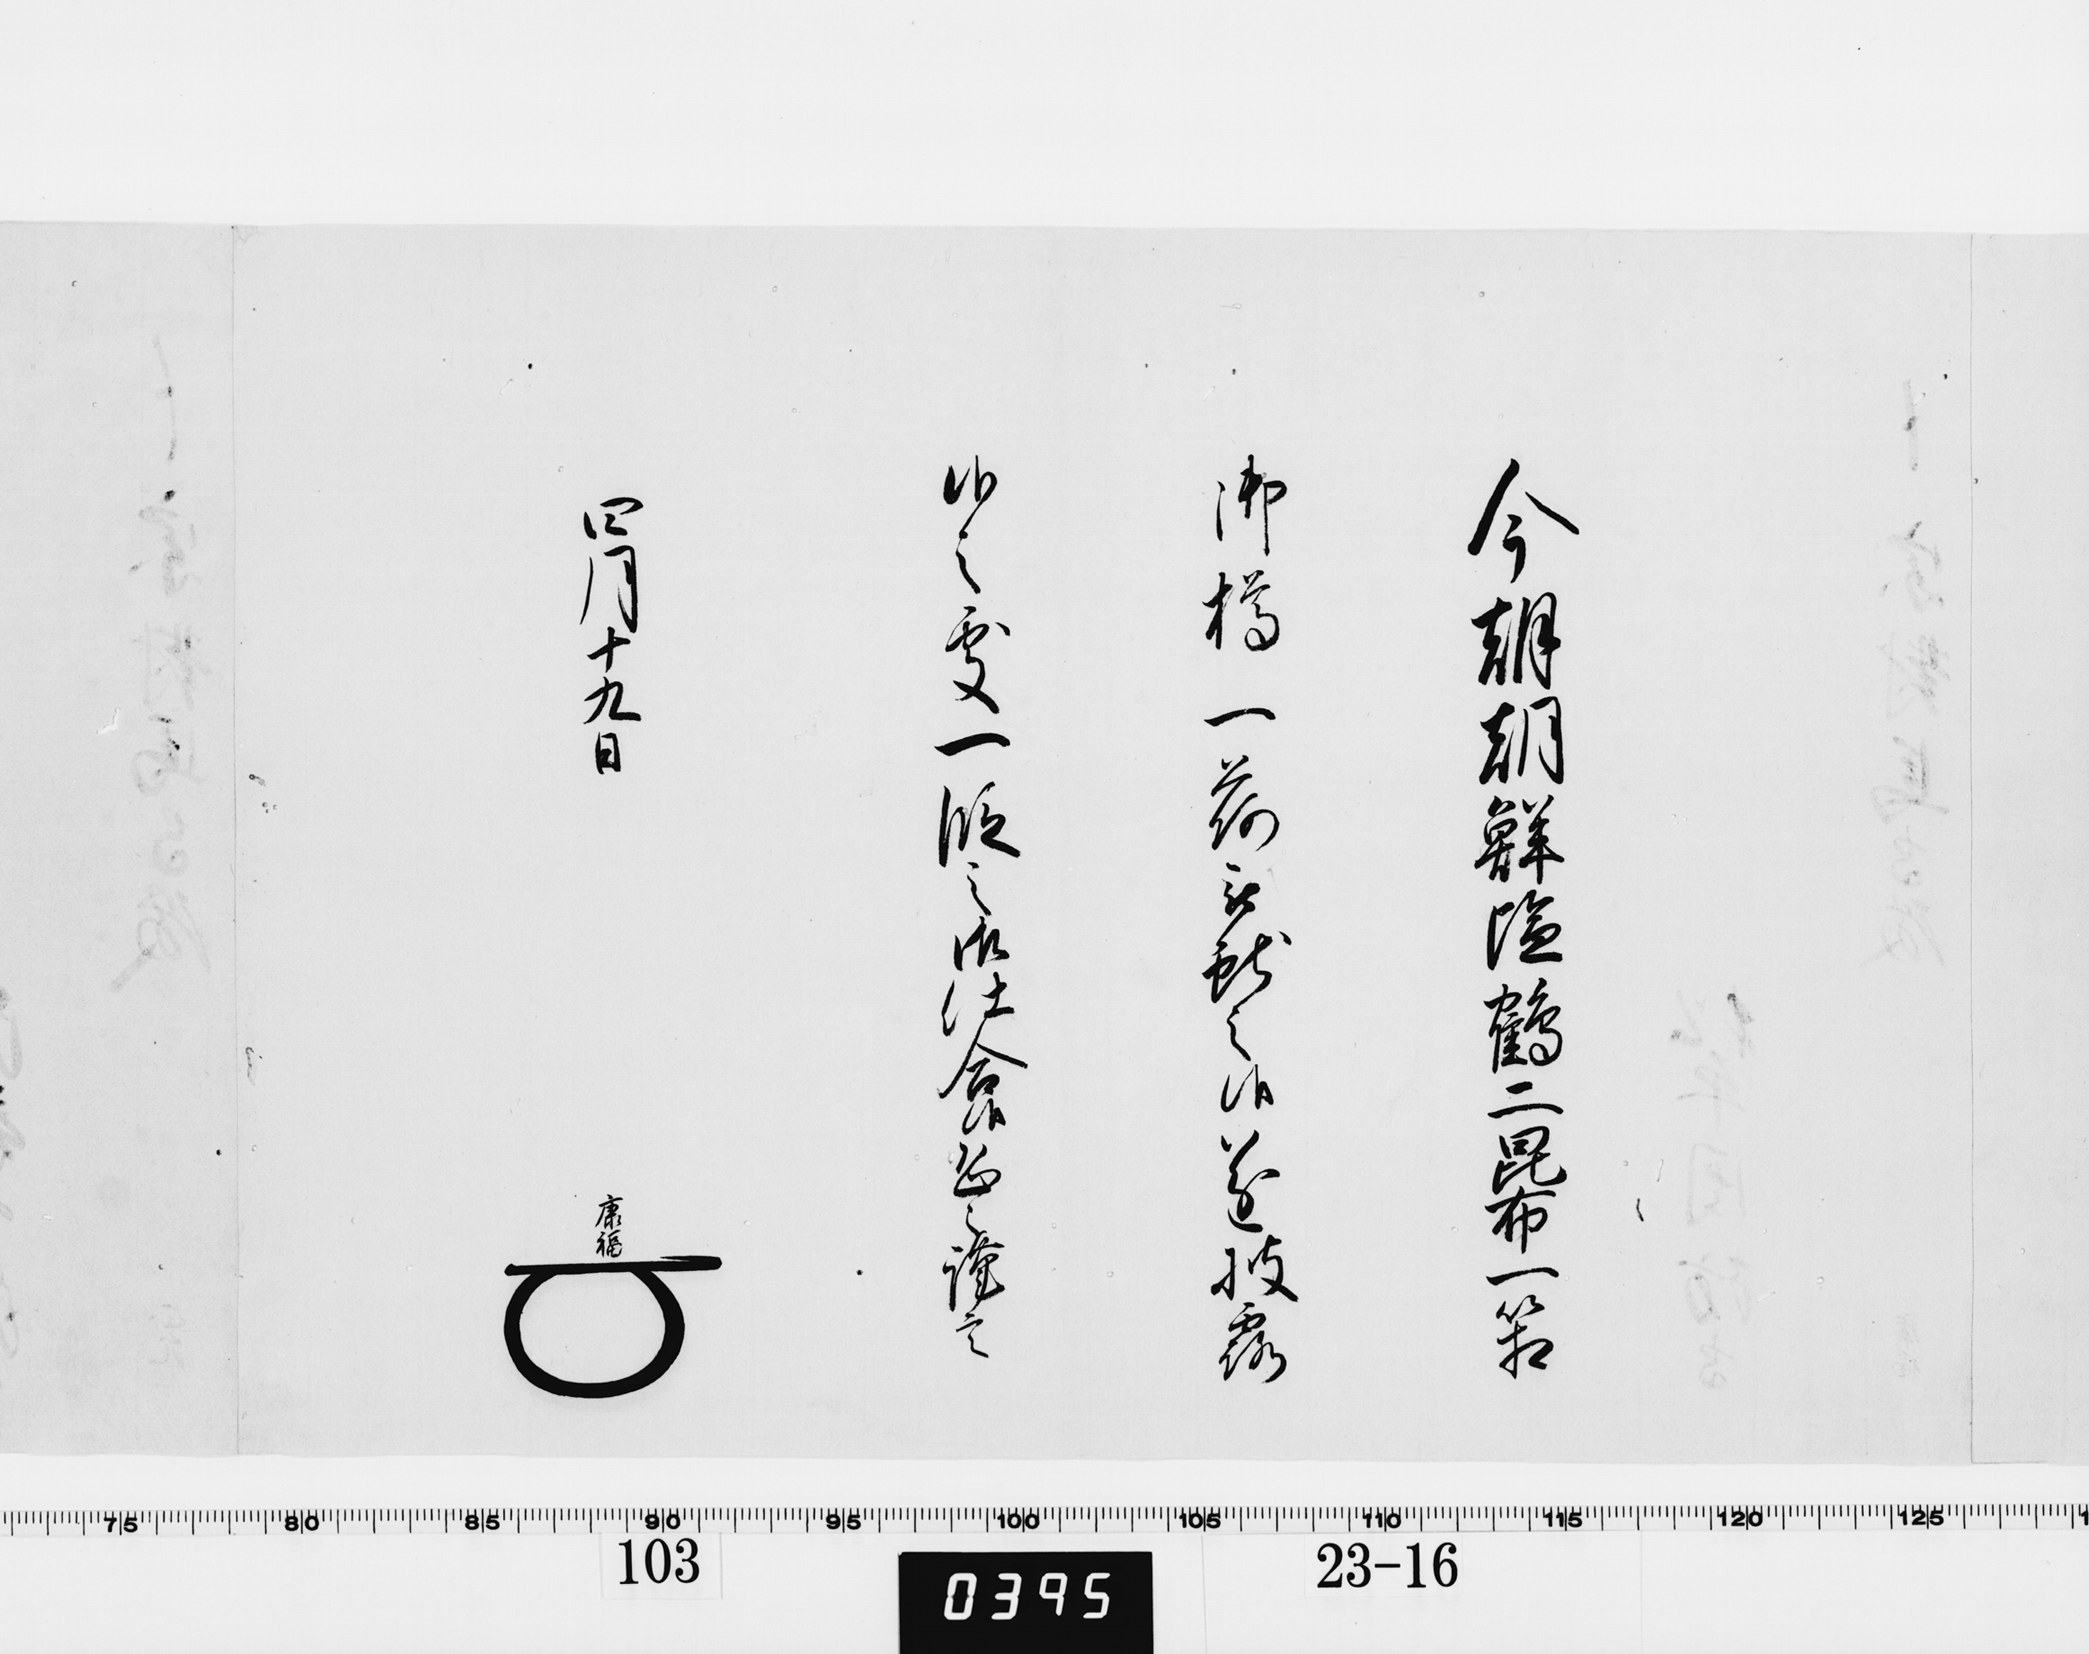 今朝朝鮮塩鶴二昆布一箱
御樽一荷被献之候遂披露
候之處一段之御仕合候恐々謹言
四月十九日
康福
75 80 85 90 95 100 105 110 115 120 125
103
0395
23-16